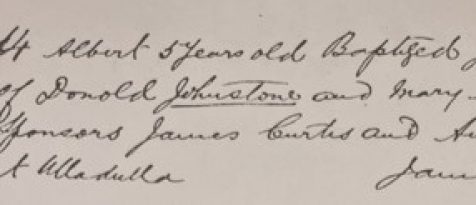 14 Albert 5 Years old Baptized
of Donold Johnstone and Mary
Sponsors James Curtis and
t Ulladulla Jam